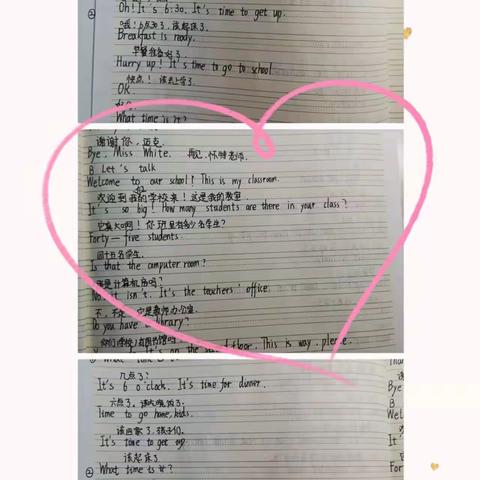 Oh! It's 6:30. It's time to get up.
哦！6点30了，该起床了。
Breakfast is ready.
早餐准备好了。
Hurry up! It's time to go to school.
快点！该去上学了。
OK.
What time is it?
谢谢你，迈克。
Bye, Miss White. 再见，怀特老师。
B Let's talk
Welcome to our school! This is my classroom.
欢迎到我们学校来！这是我的教室。
It's so big! How many students are there in your class?
它真大啊！你班里有多少名学生？
Forty-five students.
四十五名学生。
Is that the computer room?
那是计算机房吗？
No, it isn't. It's the teachers' office.
不，不是。它是教师办公室。
Do you have a library?
你们学校有图书馆吗？
It's on the second floor. This is way, please.
几点了？
It's 6 o'clock. It's time for dinner.
六点了。该吃晚饭了。
Time to go home, kids.
该回家了，孩子们。
It's time to get up.
该起床了
② What time is it?
Bye
B
Wel
It
For